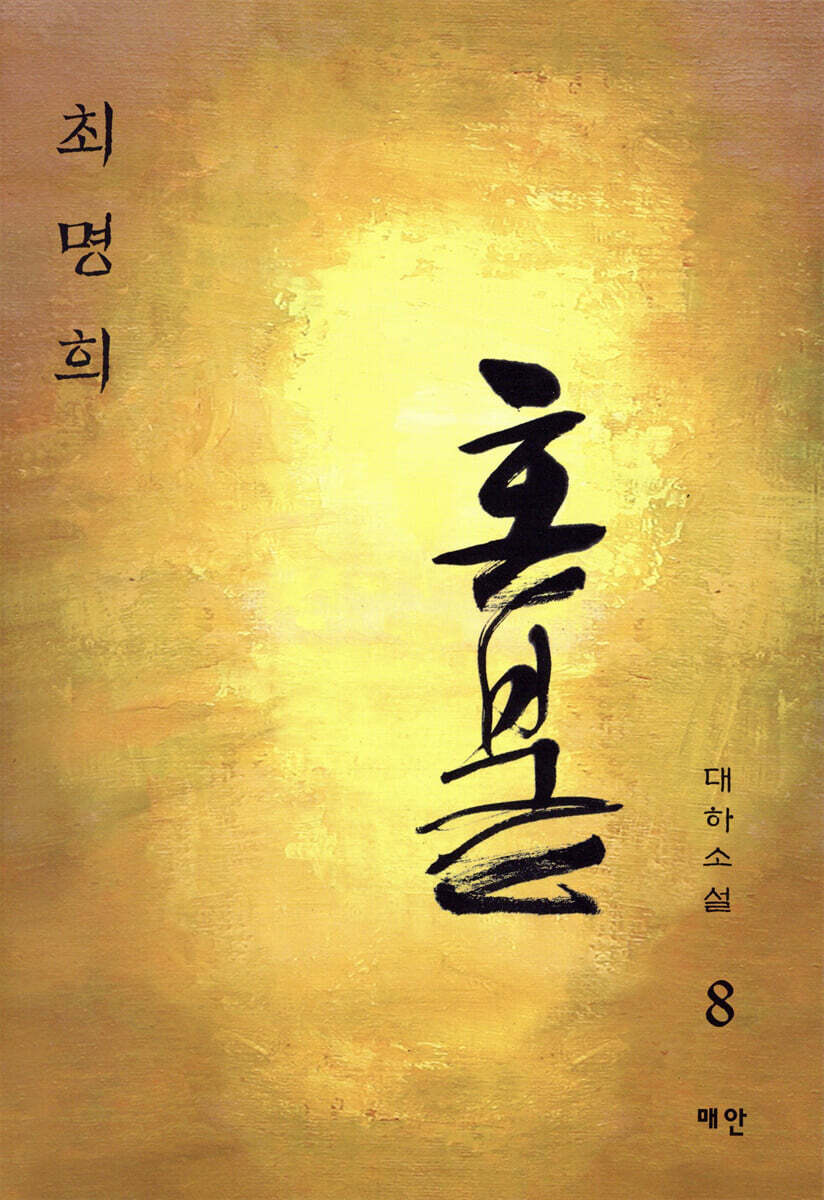 최명희
혼불
대하소설
8
매안